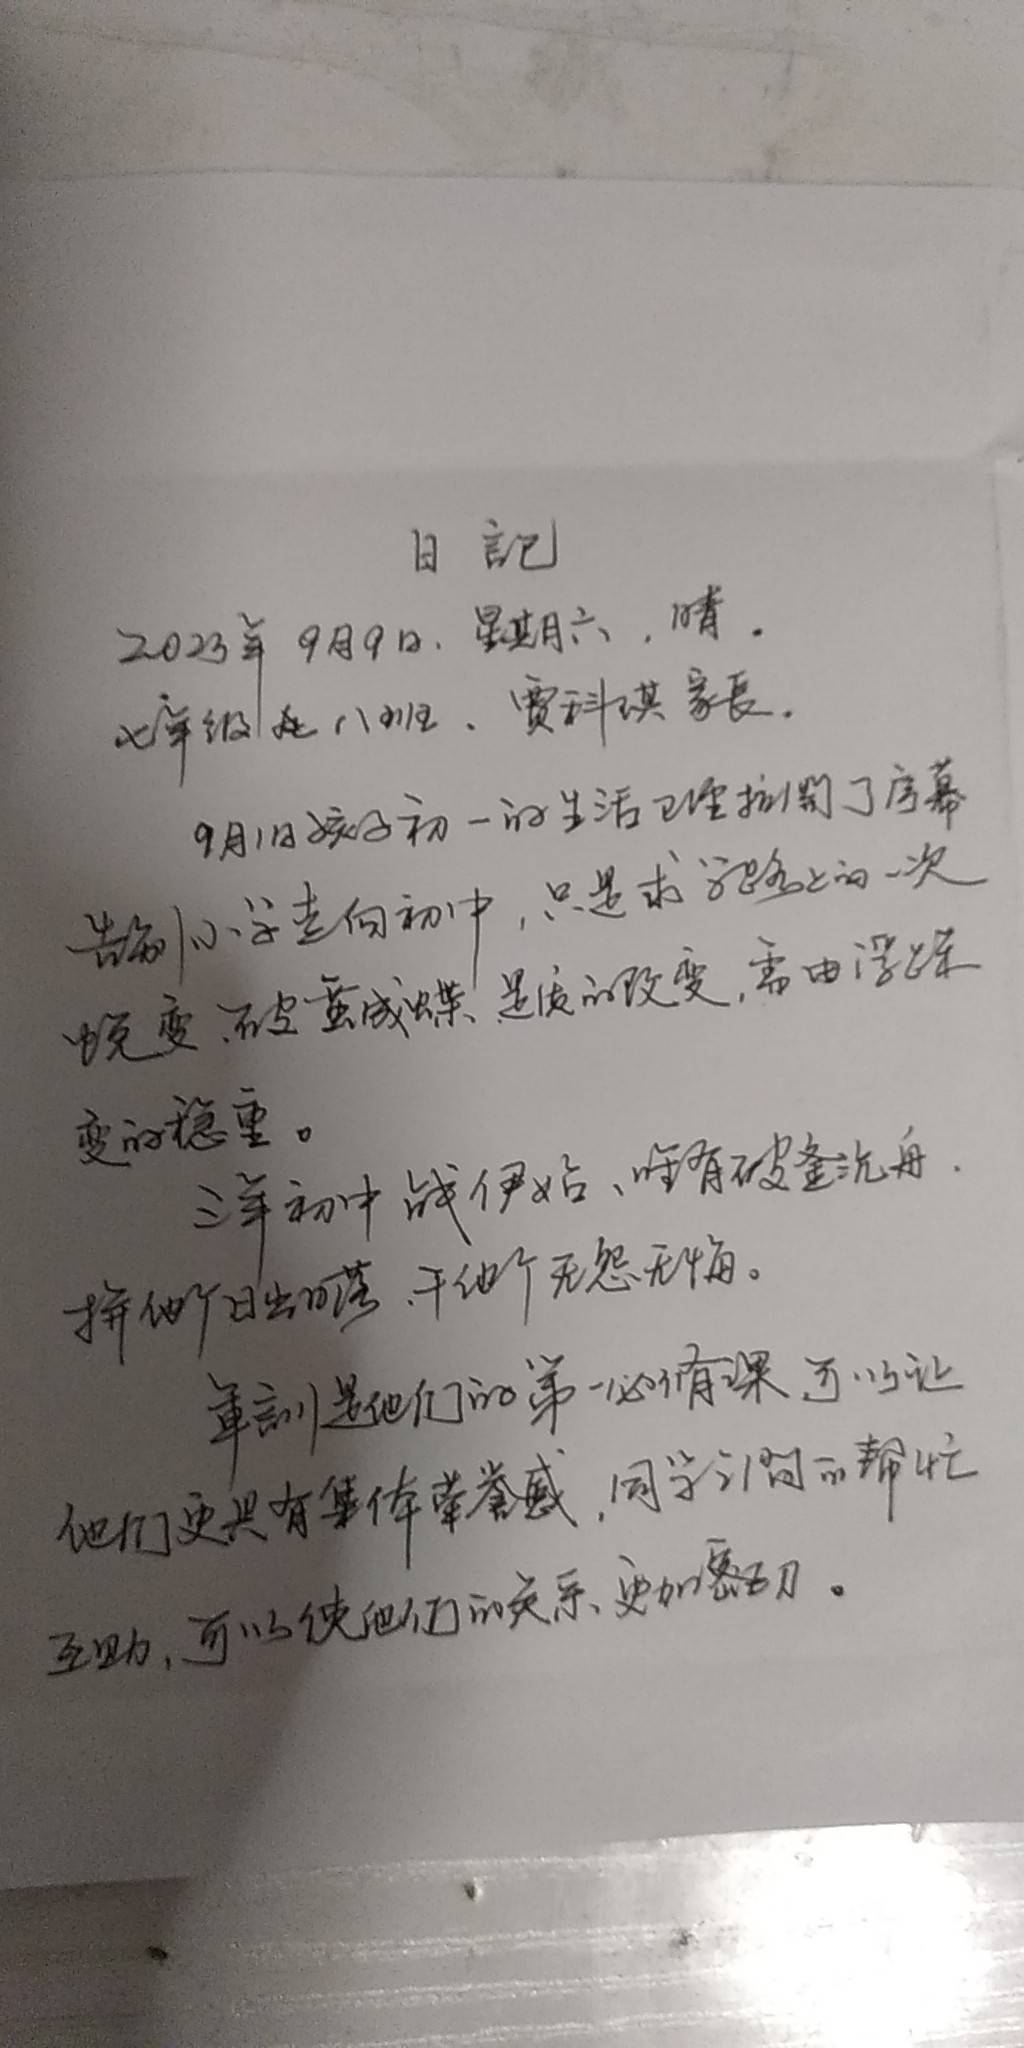 日記
2023年9月9日、星期六,晴。
七年级 八班、賈科琪家長。
9月1日孩子初一的生活已经拉開了序幕
告别小学走向初中,只是求学路上的一次
蜕变、破茧成蝶、是质的改变,需由浮躁
变的稳重。
三年初中战伊始、唯有破釜沉舟.
拼他个日出日落、干他个无怨无悔。
軍訓是他们的第一必修课 可以让
他们更具有集体荣誉感,同学之間的帮忙
互助,可以使他们的关系、更加密切。